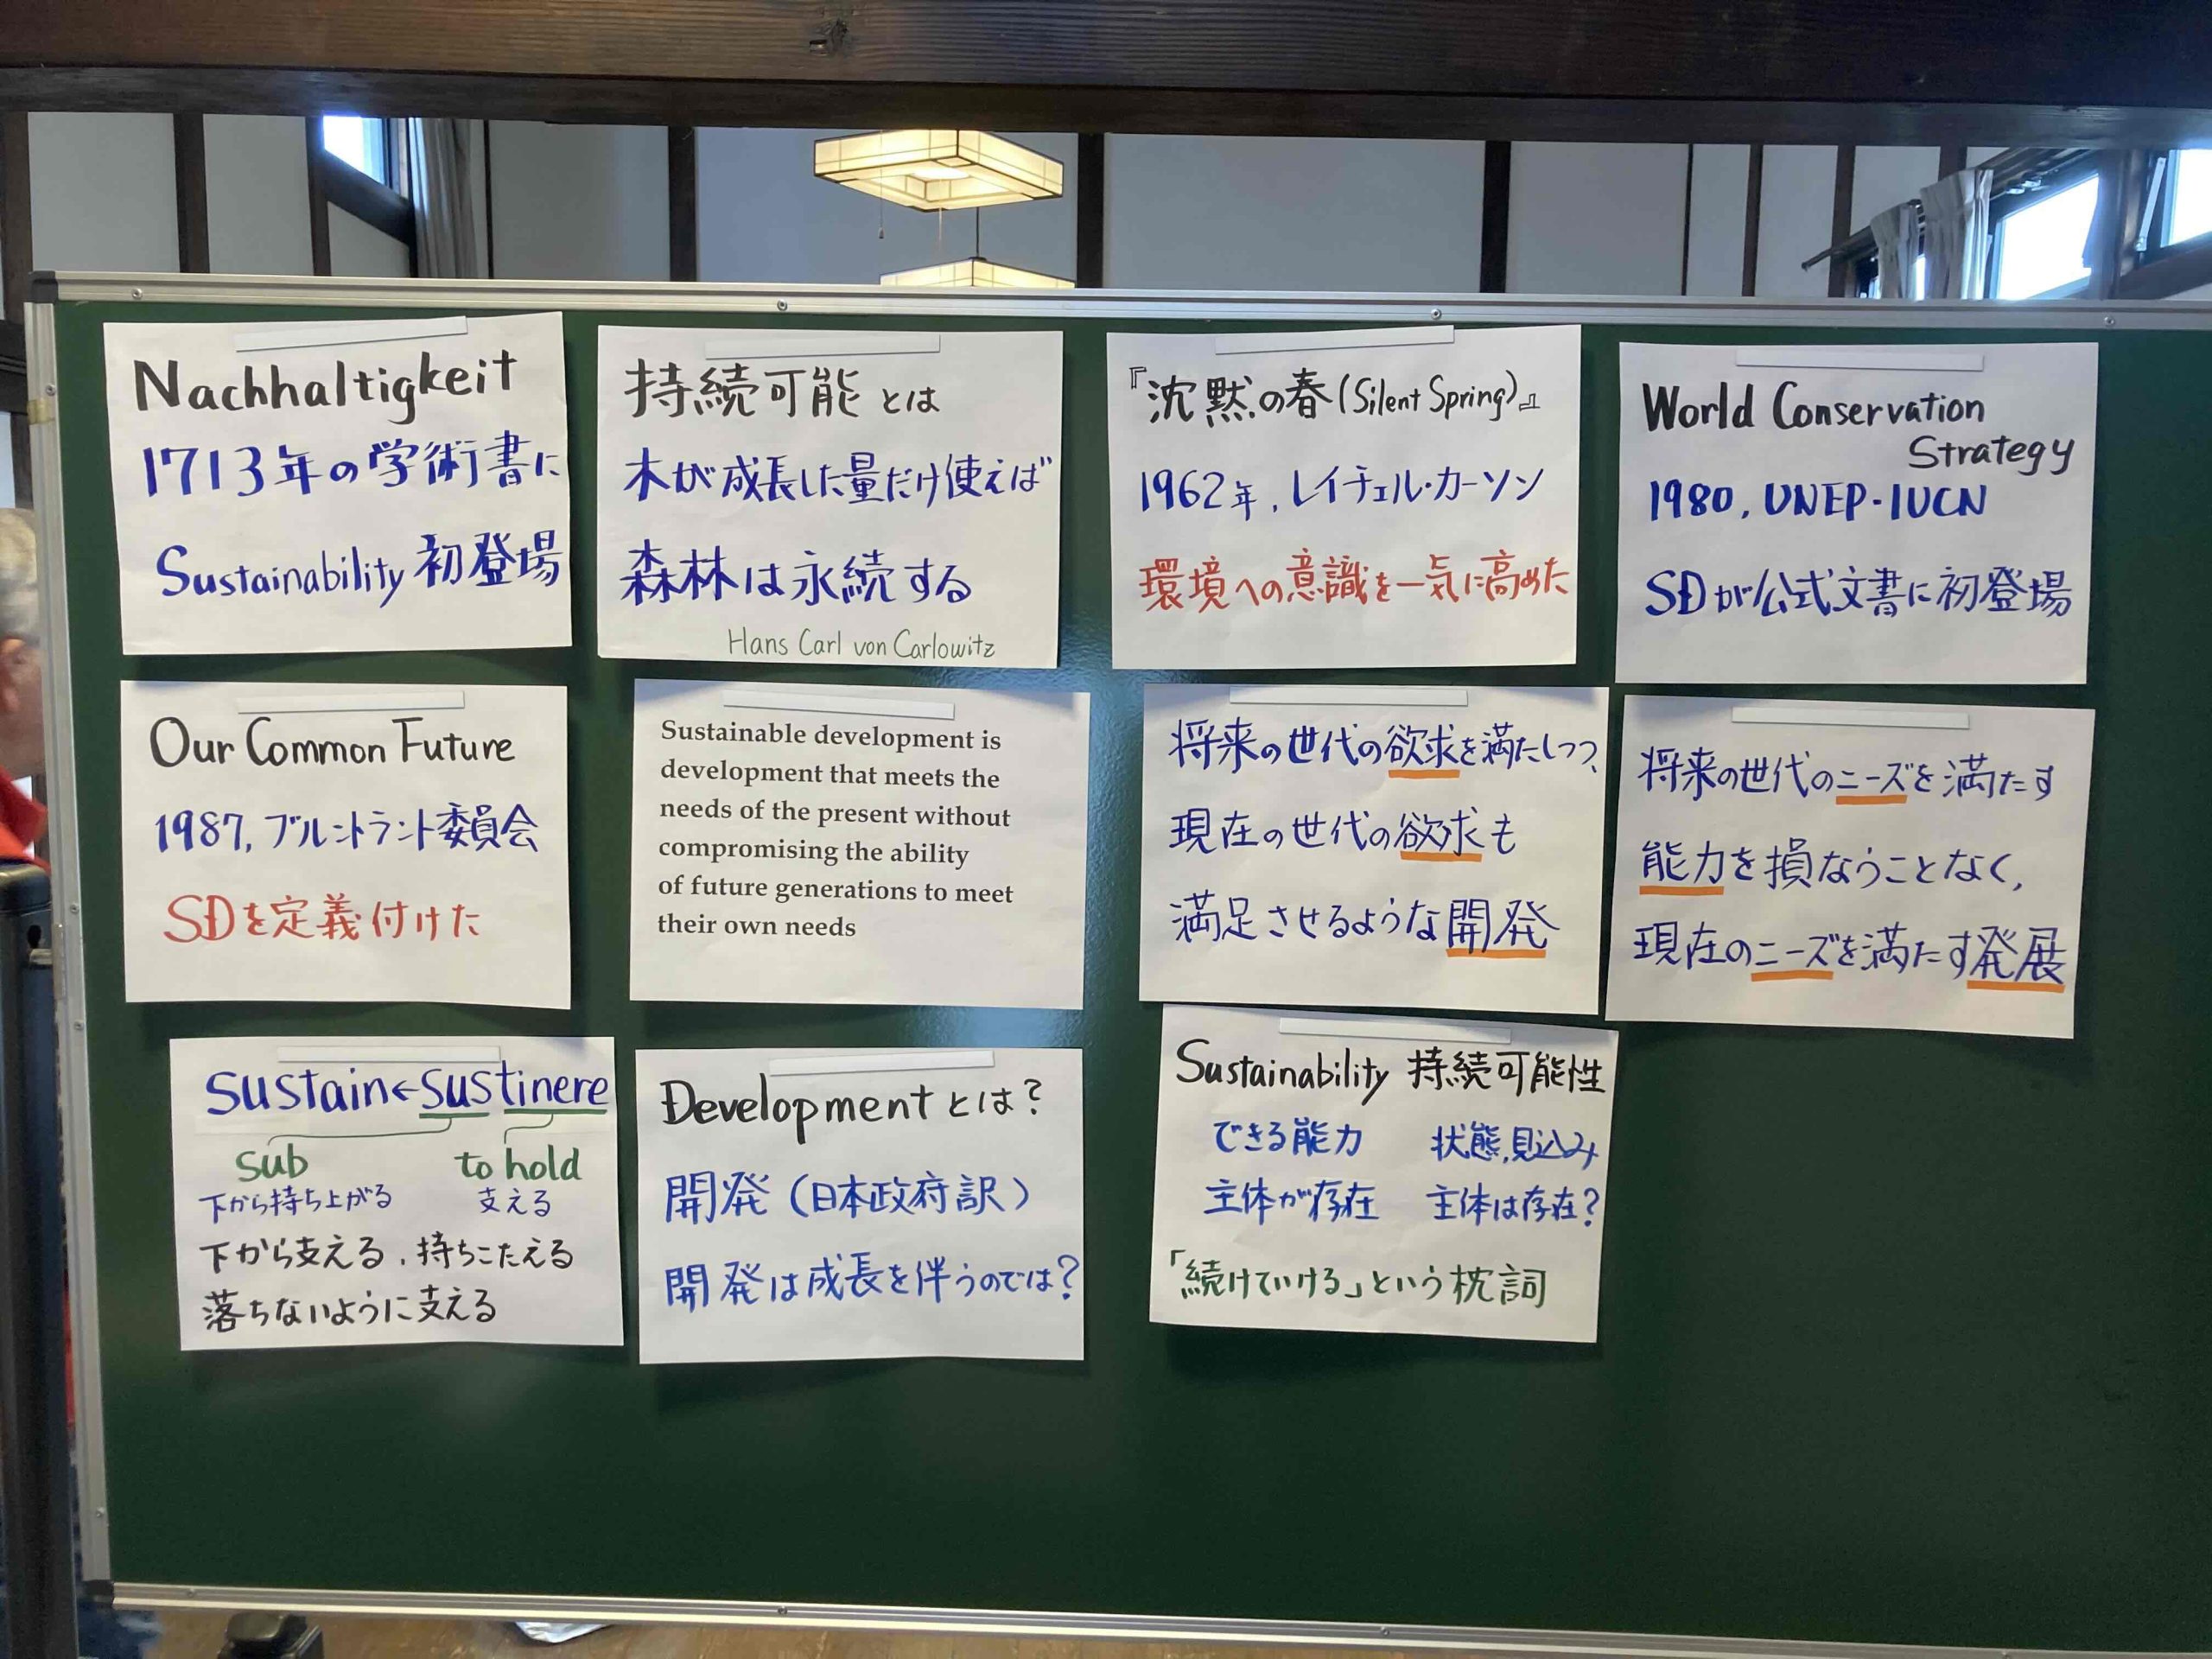 Nachhaltigkeit
1713年の学術書に
Sustainability 初登場
持続可能とは
木が成長した量だけ使えば
森林は永続する
Hans Carl von Carlowitz
『沈黙の春(Silent Spring)』
1962年,レイチェル・カーソン
環境への意識を一気に高めた
World Conservation
Strategy
1980, UNEP・IUCN
SDが公式文書に初登場
Our Common Future
1987, ブルントラント委員会
SDを定義付けた
Sustainable development is
development that meets the
needs of the present without
compromising the ability
of future generations to meet
their own needs
将来の世代の欲求を満たしつつ、
現在の世代の欲求も
満足させるような開発
将来の世代のニーズを満たす
能力を損なうことなく,
現在のニーズを満たす発展
sustain←sustinere
sub to hold
下から持ち上がる 支える
下から支える、持ちこたえる
落ちないように支える
Developmentとは?
開発(日本政府訳)
開発は成長を伴うのでは?
Sustainability 持続可能性
できる能力 状態,見込み
主体が存在 主体は存在?
「続けていける」という枕詞